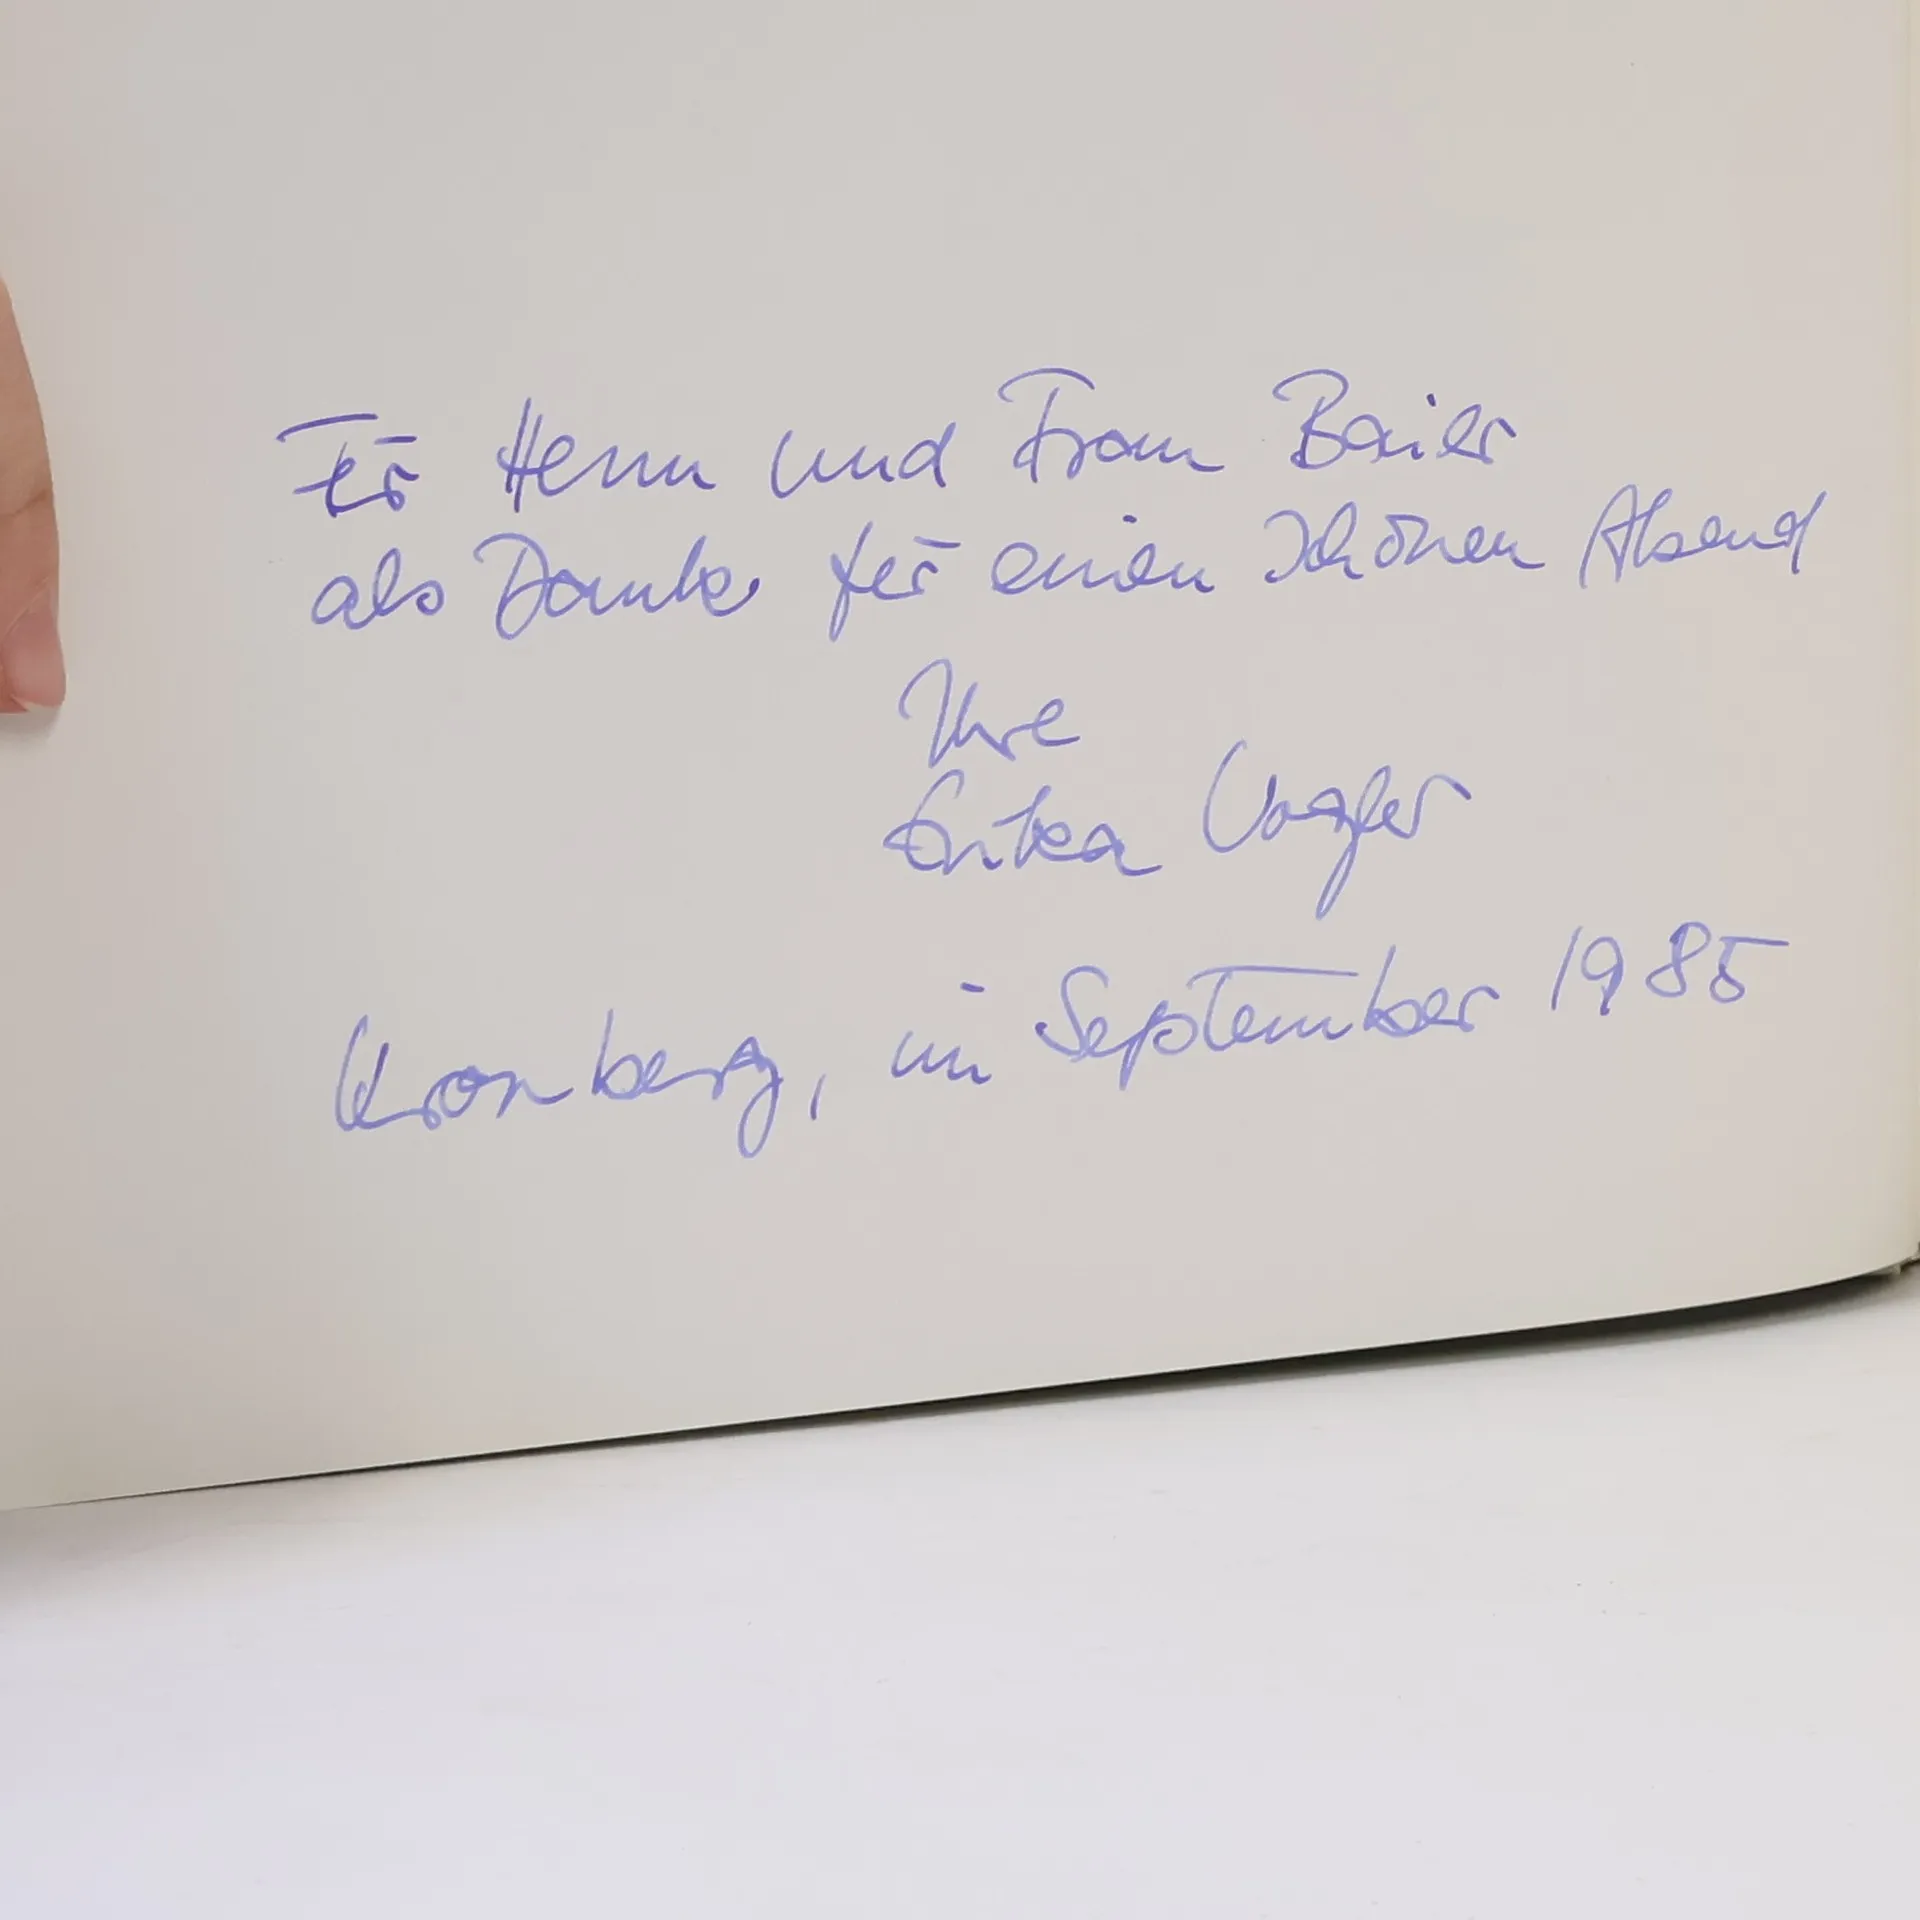 Für Herrn und Frau Baier
als Danke für einen schönen Abend
Ihre
Erika Vogler
Kronberg, im September 1985